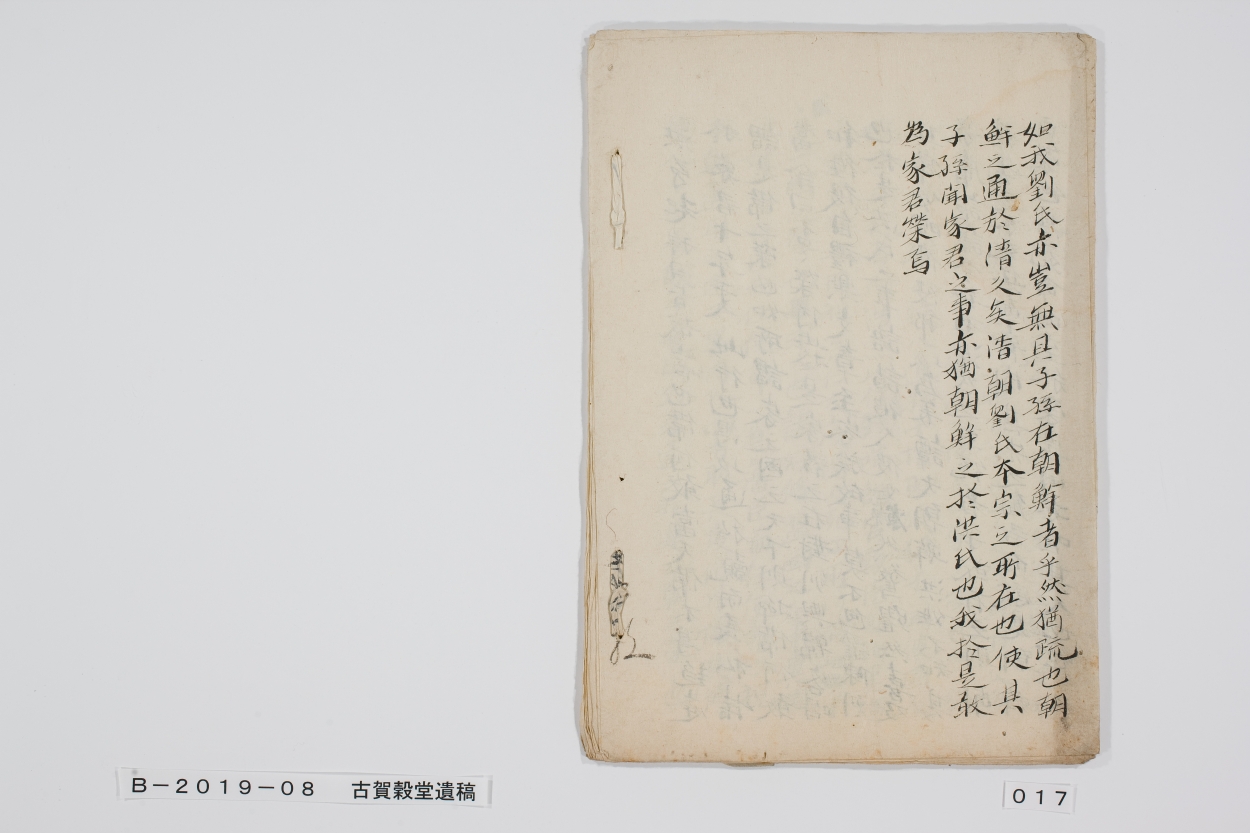 如我劉氏亦豈無其子孫在朝鮮者乎然猶疏也朝
鮮之通於清久矣清朝劉氏本宗之所在也使其
子孫聞家君之事亦猶朝鮮之於洪氏也我於是敢
為家君榮焉
B－2019－08 古賀穀堂遺稿
017